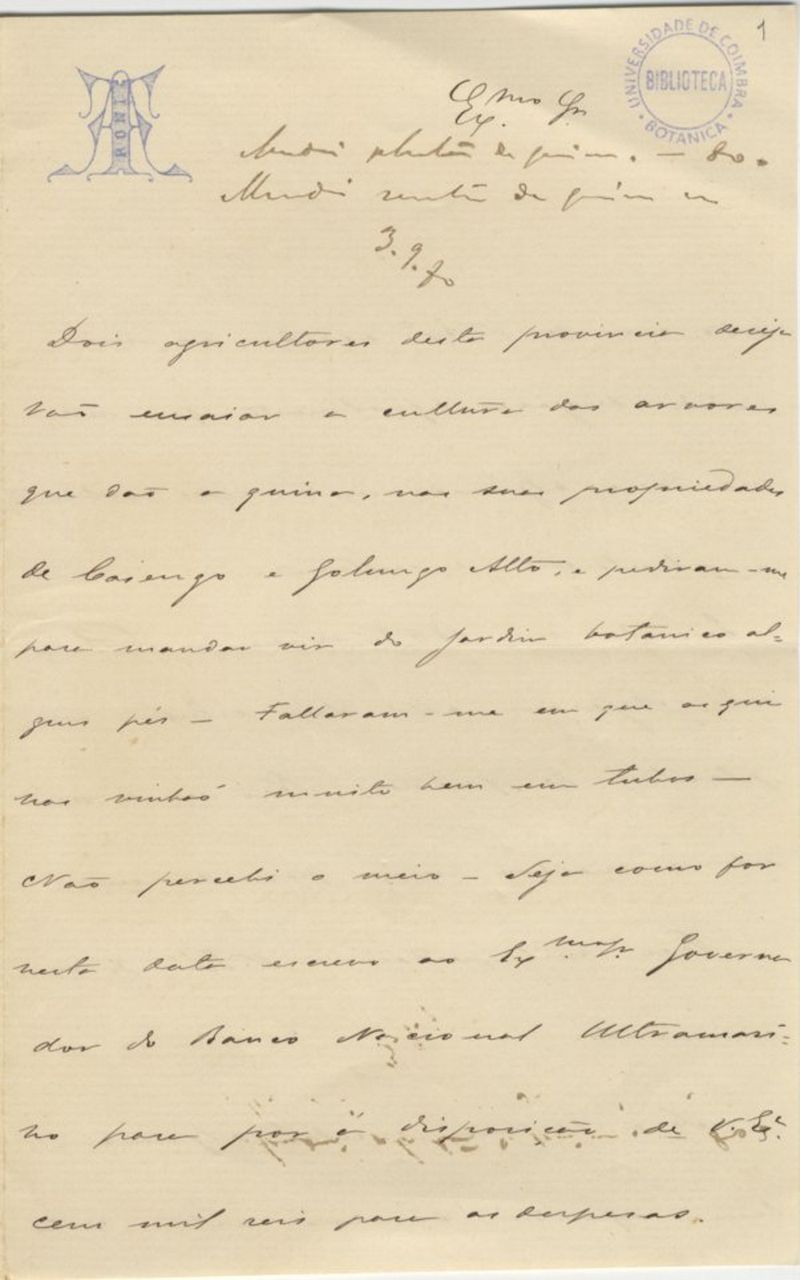 1
UNIVERSIDADE DE COIMBRA
BIBLIOTECA
BOTANICA
Exmo Sr
Mandei de quina
Mandei de quina em
3.9.80
Dois agricultores desta provincia deseja
vaõ ensaiar a cultura das arvores
que daõ a quina, nas suas propriedades
de Casengo e Golungo Alto, e pediram-me
para mandar vir do jardim botanico al=
guns pés — Fallaram-me em que as qui
nas vinhaõ muito bem em tubos —
Naõ percebi o meio — Seja como for
nesta data escrevo ao Exmo Sr. Governa
dor do Banco Nacional Ultramari=
no para por á disposição de V. Exª.
cem mil reis para as despesas.